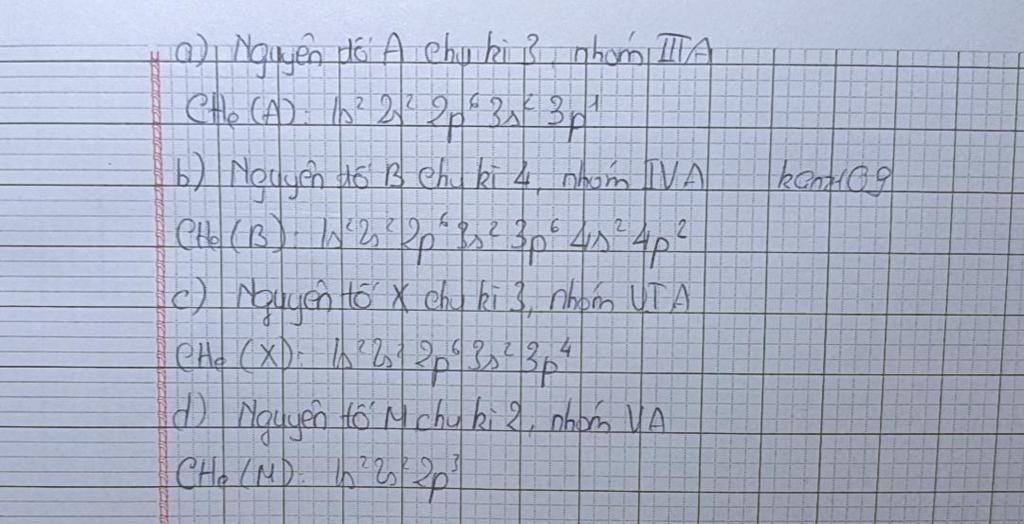 a) Nguyên tố A chu kì 3, nhóm IIIA
CHe (A): 1s² 2s² 2p⁶ 3s² 3p¹
b) Nguyên tố B chu kì 4, nhóm IVA
CHe (B): 1s² 2s² 2p⁶ 3s² 3p⁶ 4s² 4p²
c) Nguyên tố X chu kì 3, nhóm VIA
CHe (X): 1s² 2s² 2p⁶ 3s² 3p⁴
d) Nguyên tố M chu kì 2, nhóm VA
CHe (M): 1s² 2s² 2p³